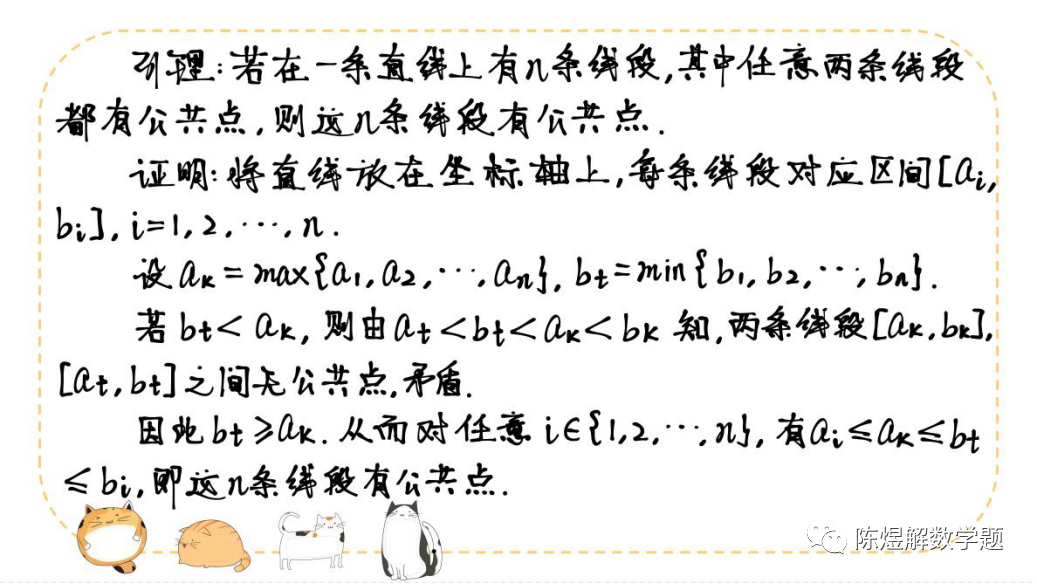 引理:若在一条直线上有n条线段,其中任意两条线段
都有公共点,则这n条线段有公共点.
证明:将直线放在坐标轴上,每条线段对应区间[aᵢ,
bᵢ], i=1,2,⋯,n.
设 aₖ=max{a₁,a₂,⋯,aₙ}, bₜ=min{b₁,b₂,⋯,bₙ}.
若 bₜ<aₖ, 则由 aₜ<bₜ<aₖ<bₖ 知,两条线段[aₖ,bₖ],
[aₜ,bₜ]之间无公共点,矛盾.
因此 bₜ≥aₖ. 从而对任意 i∈{1,2,⋯,n}, 有 aᵢ≤aₖ≤bₜ
≤bᵢ,即这n条线段有公共点.
陈煜解数学题